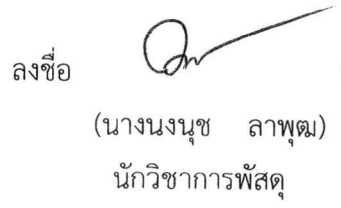 ลงชื่อ
(นางนงนุช ลาพุฒ)
นักวิชาการพัสดุ